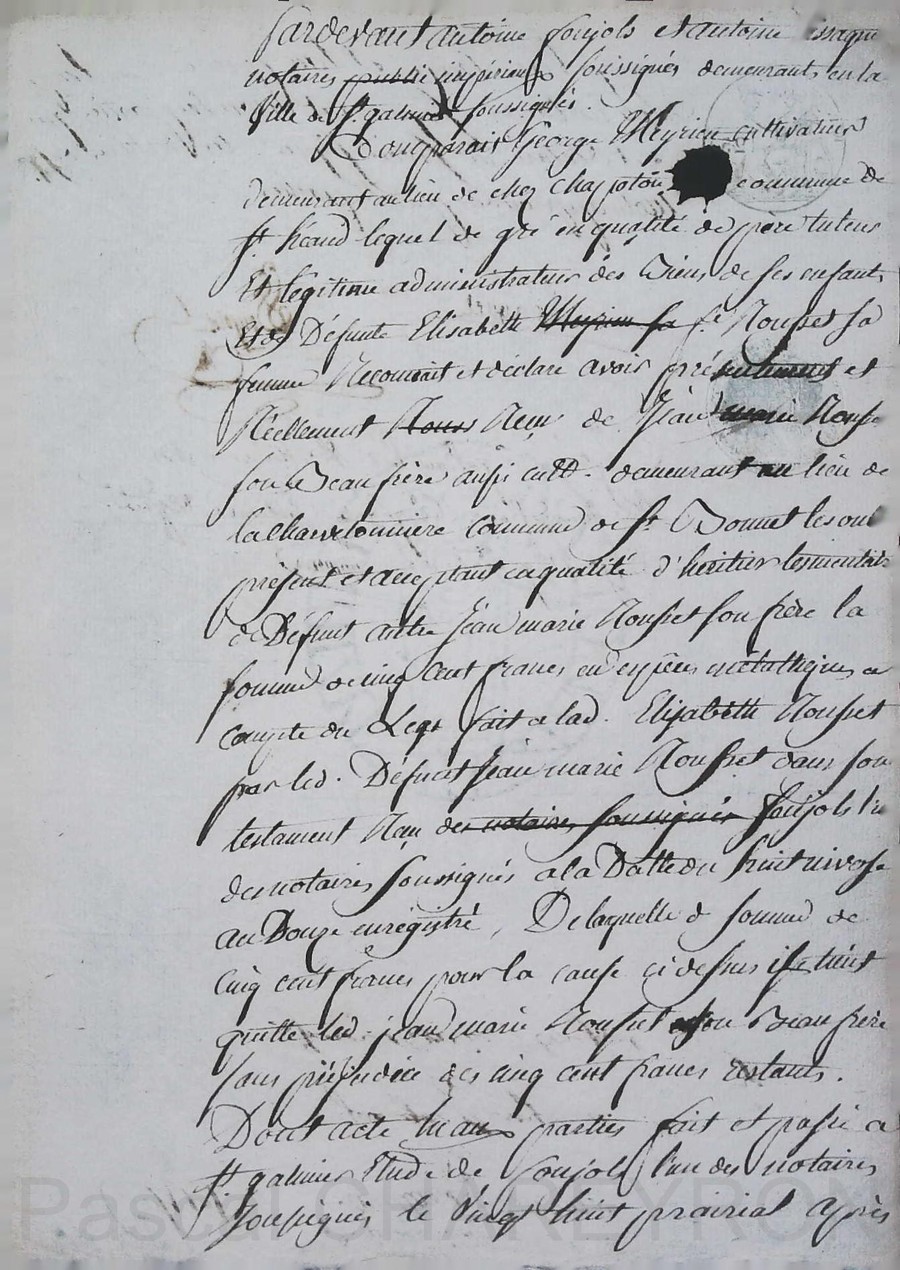 Pardevant antoine soujols et antoine
notaires public impériaux soussignés demeurants en la
ville de St. galmier soussignés.
Comparait George Meyrieu cultivateur
demeurant au lieu de chez chapoton commune de
St. héand lequel de gré en qualité de pere tuteur
Et légitime administrateur des Biens de ses enfants
Et de Défunte Elisabeth Meyrieu sa fe Rousset sa
femme Reconnait et déclare avoir présentement et
Réellement Reçu de Jean marie Rousset
son Beau frère aussi cultr. demeurant au lieu de
la Charvetonnière Commune de St Bonnet les oul
présent et acceptant en qualité d'héritier testmentaire
de Défunt autre Jean marie Rousset son frère la
somme de cinq Cent francs en espèces métalliques a
Compte du Legs fait a lad. Elizabeth Rousset
par led. Défunt Jean marie Rousset dans son
testament Reçu des notaires soussignés soujols l'un
des notaires soussignés a la Datte du huit nivose
an Douze enregistré, De laquelle d somme de
Cinq cent francs pour la cause ci dessus il se tient
quitte led. jean marie Rousset son Beau frère
sans préjudice des cinq cent francs restants.
Dont acte lu aux parties fait et passé a
St galmier Etude de Soujols l'un des notaires
soussignés le vingt huit prairial après
Pascal CHAREYRON